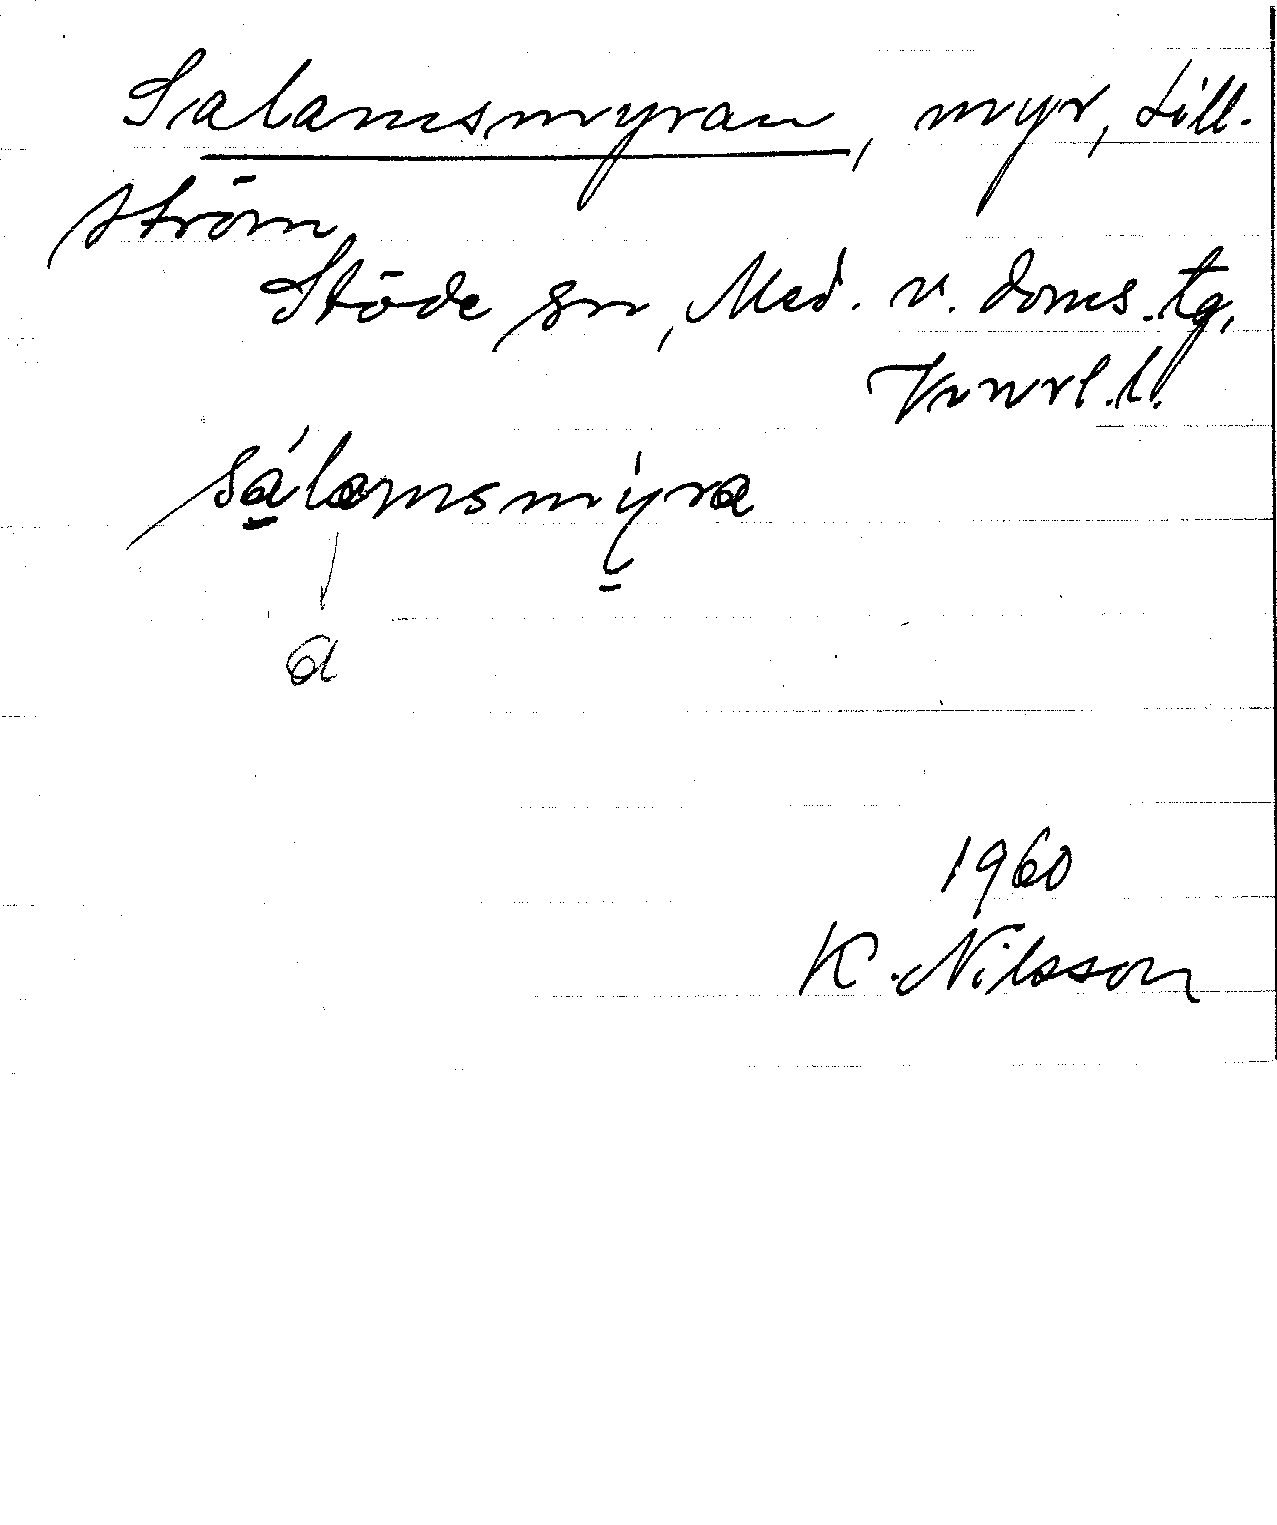 Salamsmyran, myr, Lill-
ström
Stöde sn, Med. v. doms. tg,
Vnrl. l.
sálamsmýra
a
1960
K. Nilsson